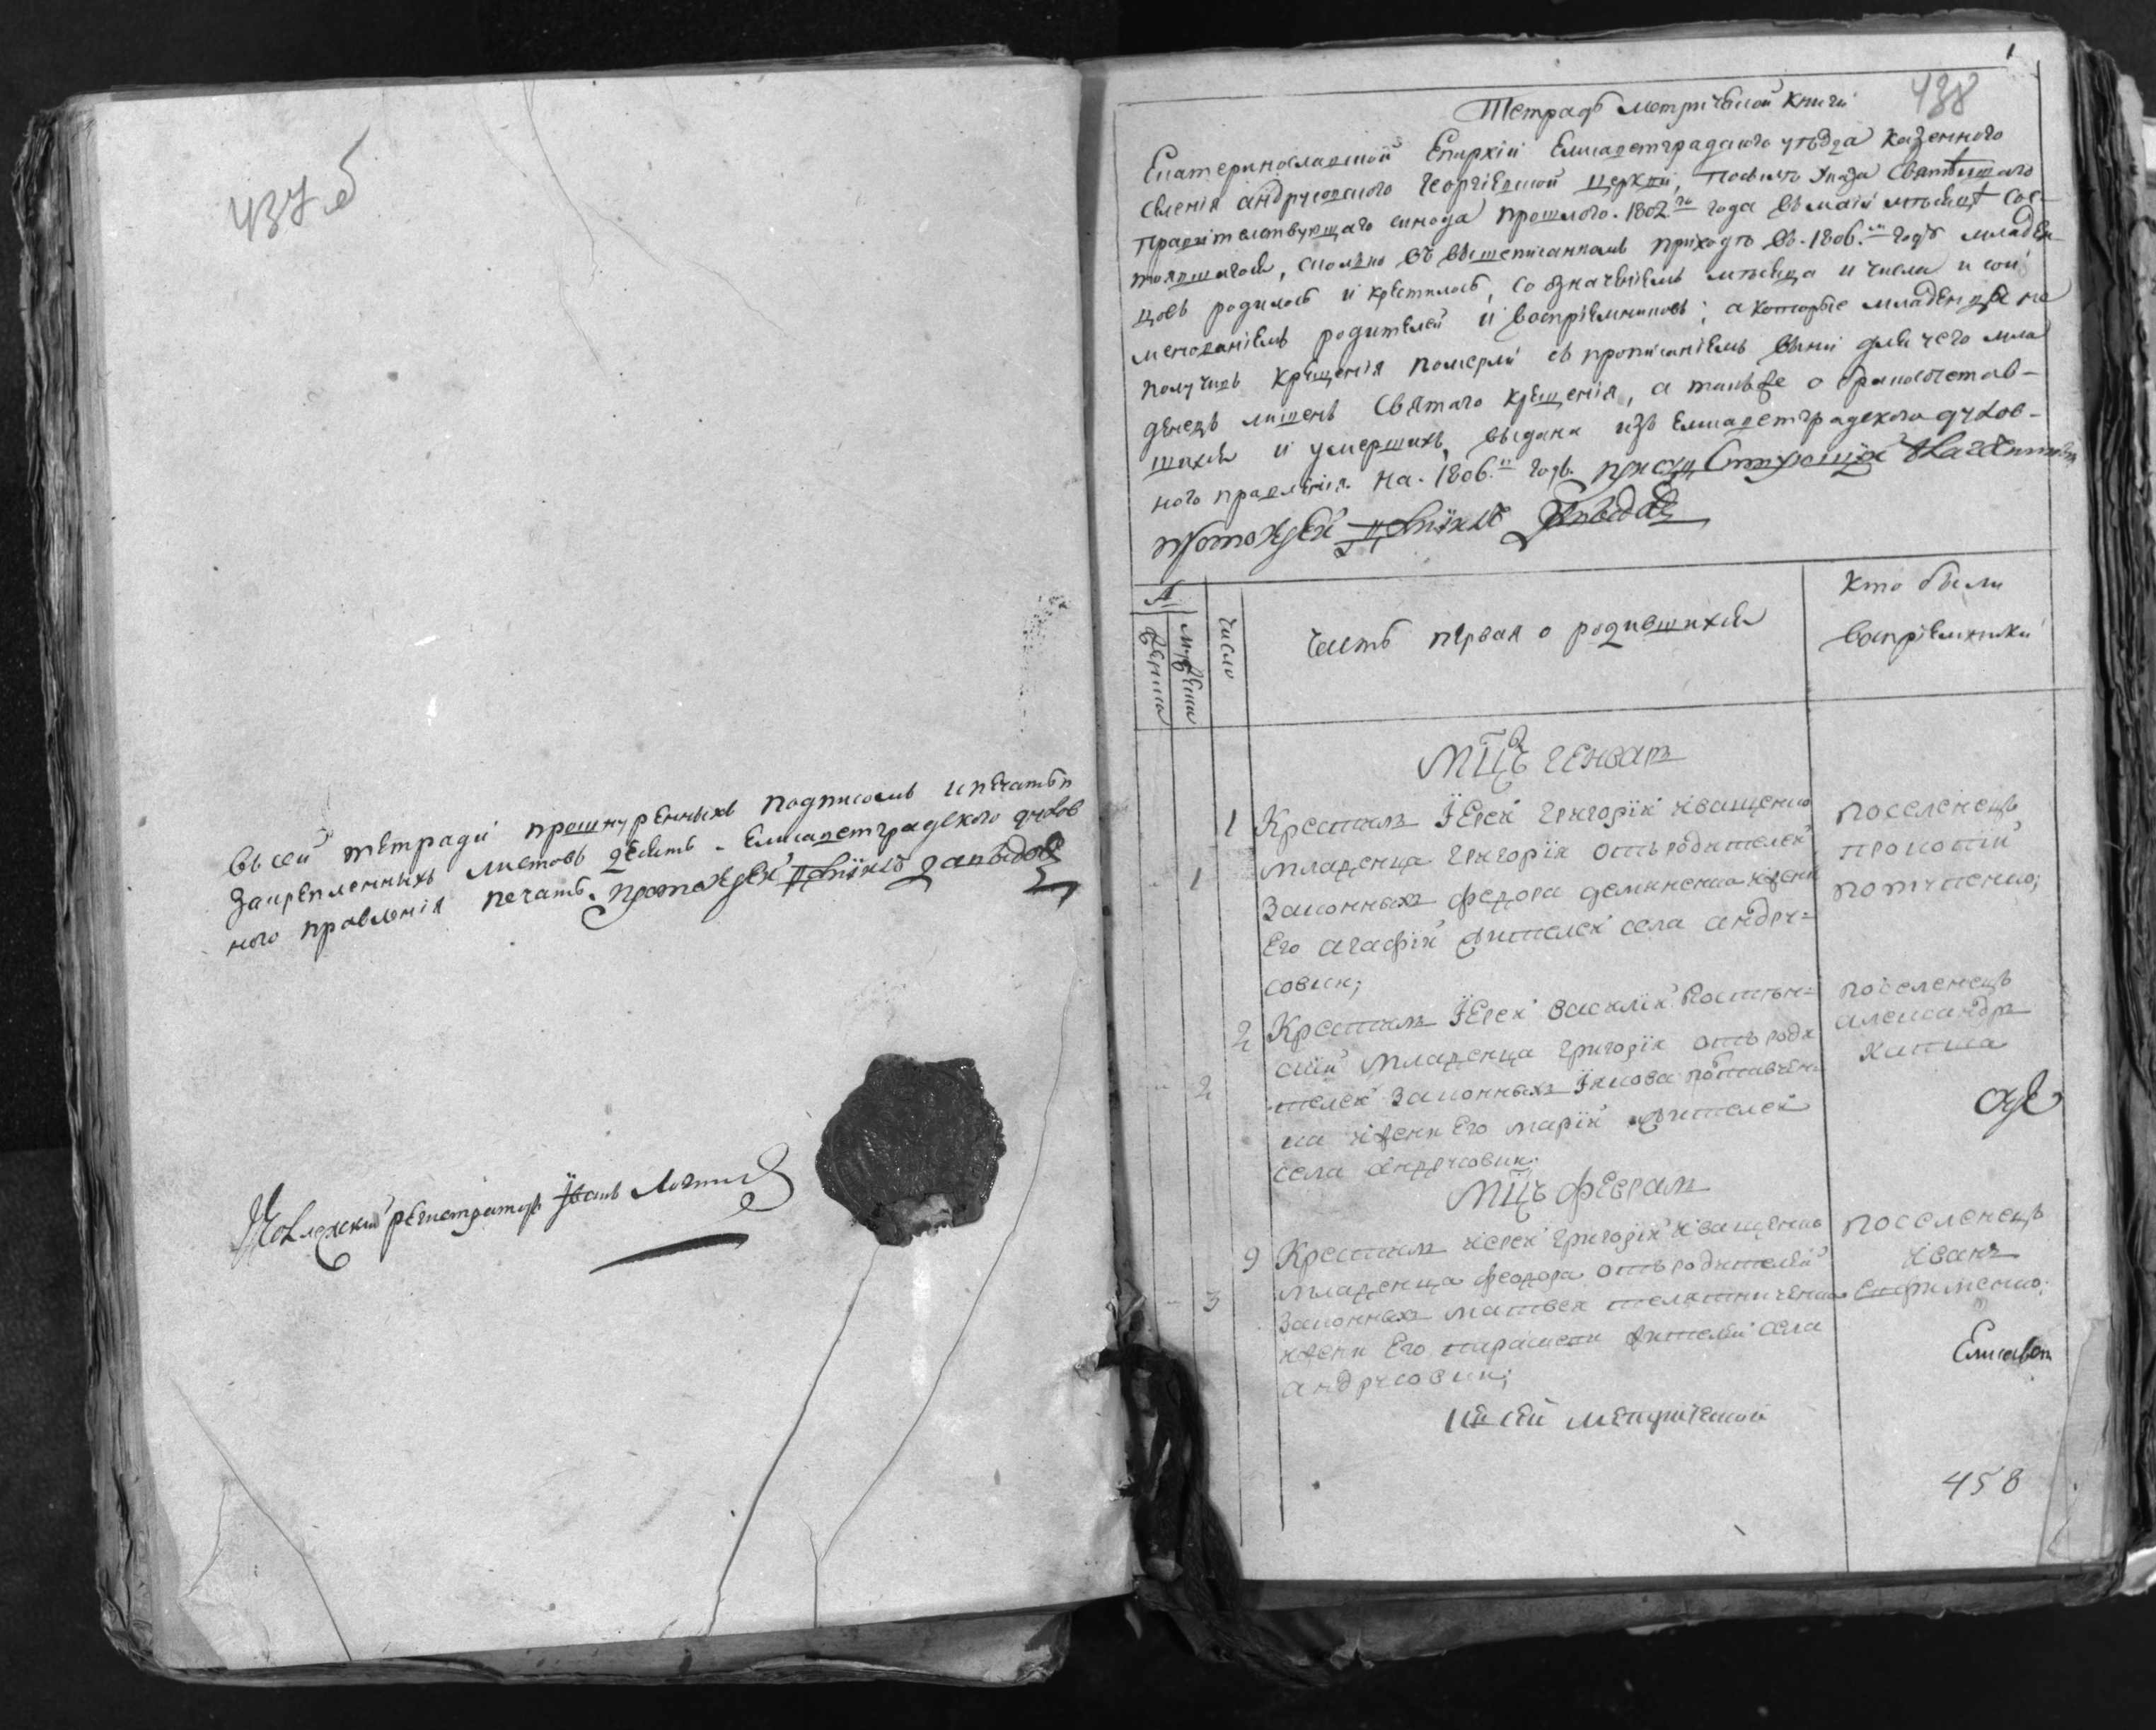 437 б
Въ сей тетради прошнуренныхъ подписомъ и печатьи
закрепленныхъ листовъ десять. Елисаветградского духов
ного правленія печать. протоіерей
Колежский регистраторъ Іванъ
1
438
Тетрадь метричъской книги
Екатеринославской Епархіи Елисаветградскаго уѣзда казенного
селенія андрусовского Георгіевской церкви, посилѣ Указа Святейшаго
правителствующаго синода прошлого. 1802го года въ маіи мѣсяцѣ сос-
тоявшагося, сколько въ вышеписанномъ приходѣ въ. 1806.мъ годѣ младен-
цовъ родилось и крестилось, со означеніемъ мѣсяца и числа и сои
менованіемъ родителей и воспріемниковъ; а которые младенцы не
получивъ крещенія померли съ прописаніемъ вины для чего мла
денецъ лишенъ Святаго крещенія, а такъже о бракосочетав-
шихся и умершихъ, выдана изъ Елисаветградского духов-
ного правленія. На. 1806.й годъ.
протоіерей
№
женска
мужеска
число
Часть первая о родившихся
Кто были
воспріемники
мцъ генвар
1
1
Крестилъ Їерей григорїй Иващенко
младенца григорїя отъ родителей
законныхъ федора деминенка жени
Его агафїи жителей села андру=
совки;
поселенецъ
прокопій
2
2
Крестилъ Їерей василїй
младенца григорїя отъ роди
телей законныхъ Їякова полтавчен-
ка жени Его марїи жителей
села андрусовки.
поселенецъ
александръ
мцъ феврал
9
3
Крестилъ їерей григорїй иващенко
младенца феодора отъ родителей
законныхъ матвея
жени Его параски жителей села
андрусовки;
поселенецъ
иванъ
Ефименко;
Елисавет
къ сей метрической
458